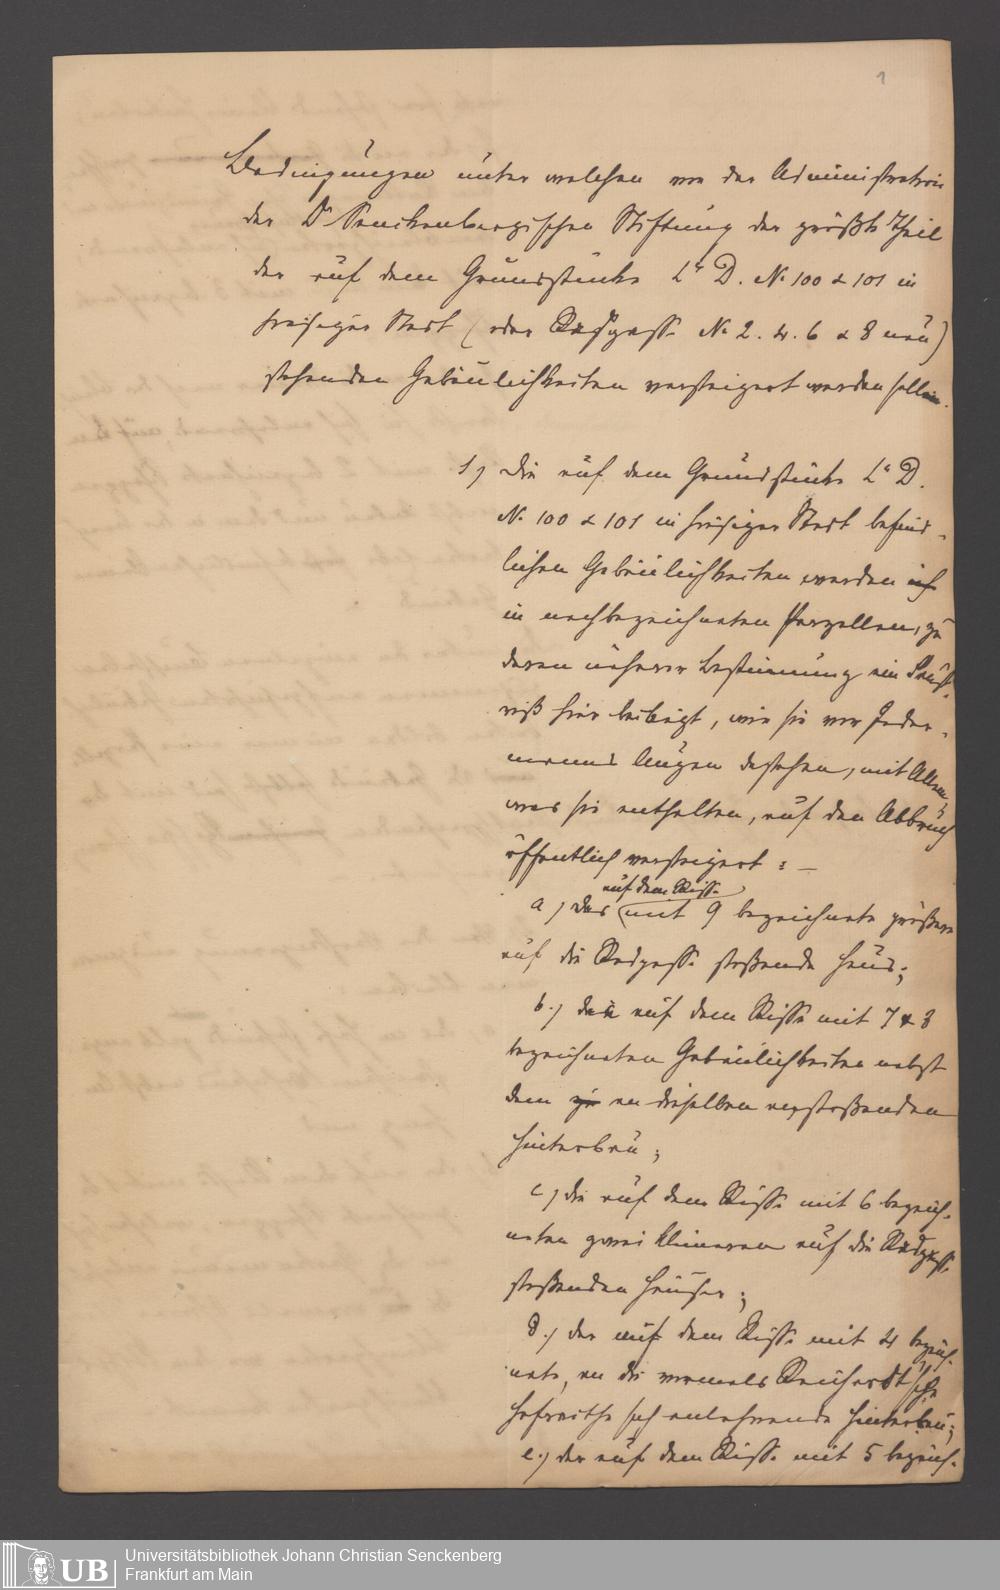 1
Bedingungen unter welchen von der Administration
der Dr Senckenbergischen Stiftung der größte Theil
der auf dem Grundstücke Lr D. No 100 & 101 in
hiesiger Stadt (oder Radgasse No 2. 4. 6 & 8 neu)
stehenden Gebäulichkeiten versteigert werden sollen.
1) Die auf dem Grundstücke Lr D.
No 100 & 101 in hiesiger Stadt befind-
lichen Gebäulichkeiten werden
in nachbezeichneten Parzellen, zu
deren näherer Bestimmung ein
riß hier beiliegt, wie sie vor Jeder-
manns Augen dastehen, mit Allem
was sie enthalten, auf den Abbruch
öffentlich versteigert: —
auf dem Risse
a) das mit 9 bezeichnete größere
auf die Radgasse stoßende Haus;
b.) die auf dem Risse mit 7 & 8
bezeichneten Gebäulichkeiten nebst
dem an dieselben anstoßenden
Hinterbau;
c) die auf dem Risse mit 6 bezeich-
neten zwei kleineren auf die Radgasse
stoßenden Häuser;
d.) der auf dem Risse mit 4 bezeich-
nete, an die vormals Reichardt'sche
Hofraithe sich anlehnende Hinterbau;
e.) der auf dem Risse mit 5 bezeich-
UB
Universitätsbibliothek Johann Christian Senckenberg
Frankfurt am Main